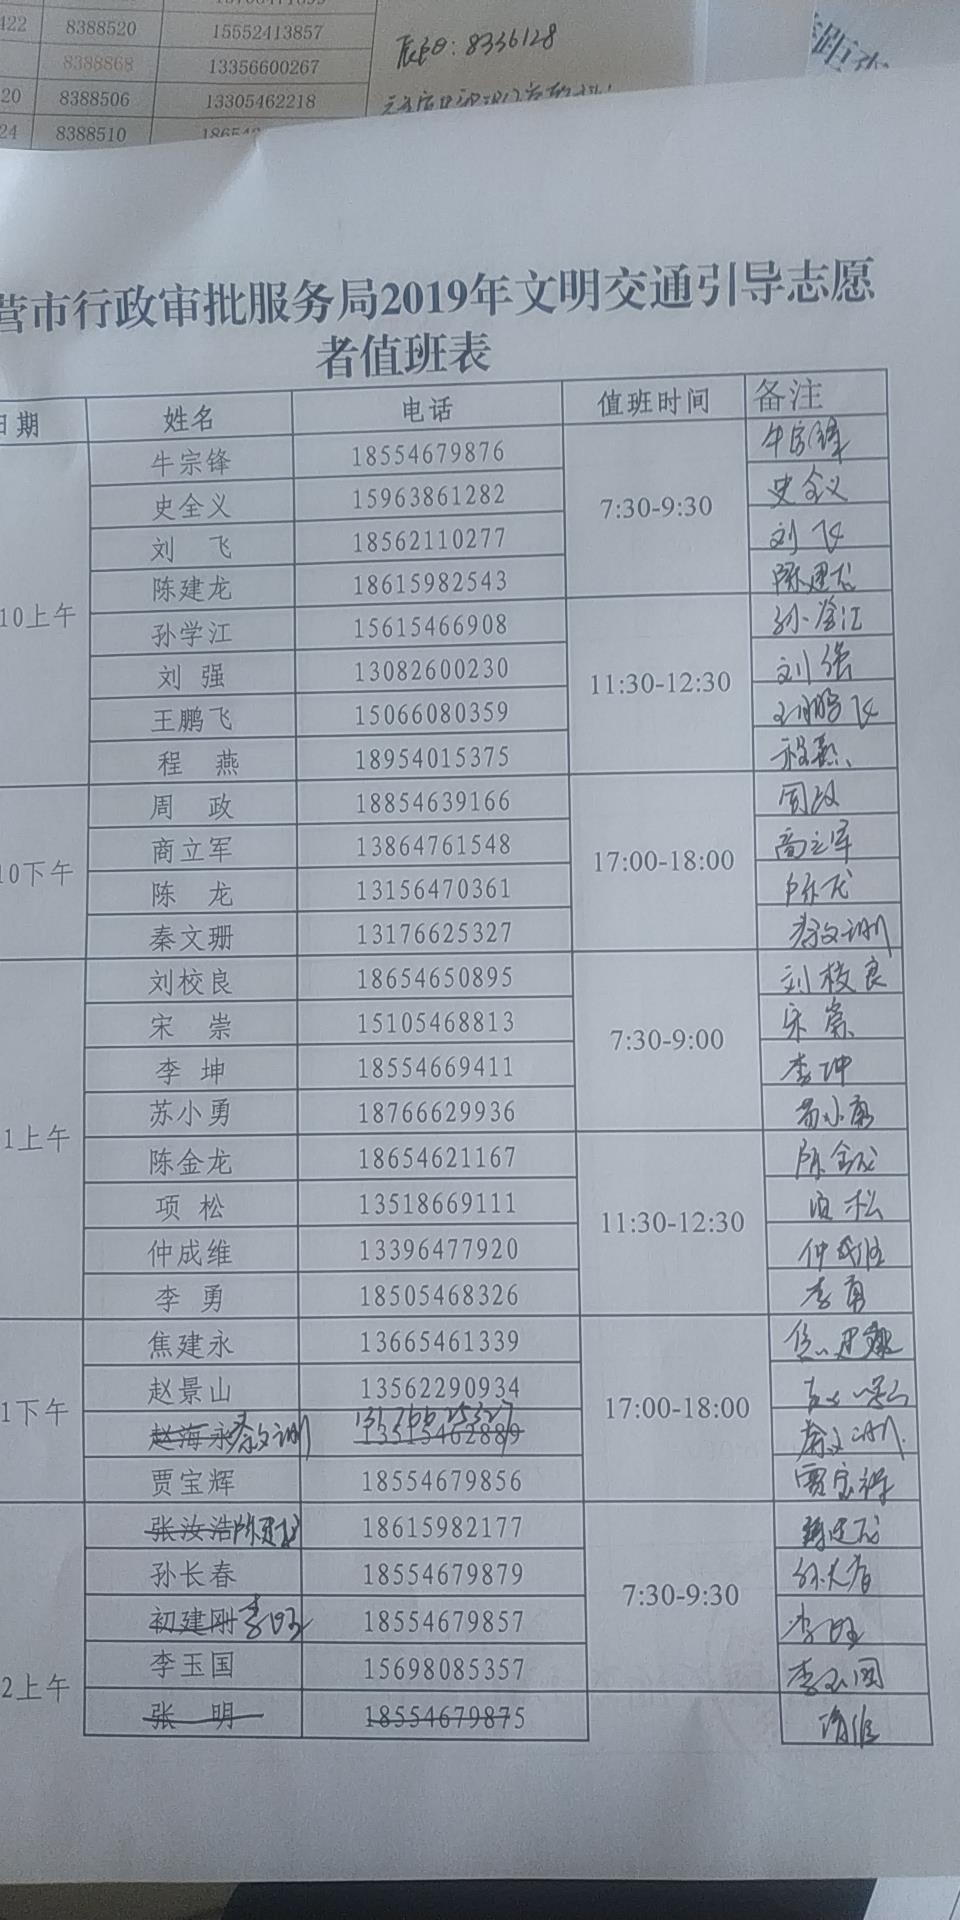 422 8388520 15552413857
8388868 13356600267
辰: 8336128
20 8388506 13305462218
24 8388510
营市行政审批服务局2019年文明交通引导志愿
者值班表
日期 姓名 电话 值班时间 备注
10上午 牛宗锋 18554679876 7:30-9:30 牛宗锋
史全义 15963861282 史全义
刘 飞 18562110277 刘飞
陈建龙 18615982543 陈建龙
孙学江 15615466908 11:30-12:30 孙学江
刘 强 13082600230 刘强
王鹏飞 15066080359 王鹏飞
程 燕 18954015375 程燕
10下午 周 政 18854639166 17:00-18:00 周政
商立军 13864761548 商立军
陈 龙 13156470361 陈龙
秦文珊 13176625327 秦文珊
1上午 刘校良 18654650895 7:30-9:00 刘校良
宋 崇 15105468813 宋崇
李 坤 18554669411 李坤
苏小勇 18766629936 苏小勇
陈金龙 18654621167 11:30-12:30 陈金龙
项 松 13518669111 项松
仲成维 13396477920 仲成维
李 勇 18505468326 李勇
1下午 焦建永 13665461339 17:00-18:00 焦建永
赵景山 13562290934 赵景山
赵海永 秦文珊 13176625327 秦文珊
贾宝辉 18554679856 贾宝辉
2上午 张汝浩 陈建龙 18615982177 7:30-9:30 陈建龙
孙长春 18554679879 孙长春
初建刚 李旺 18554679857 李旺
李玉国 15698085357 李玉国
张 明 18554679875